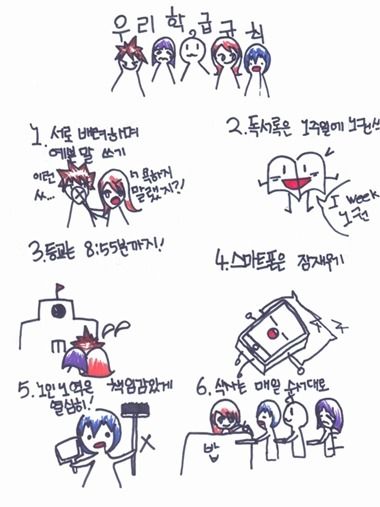 우리학급규칙
1. 서로 배려하며
예쁜 말 쓰기
이런
욕하지
말랬지?!
2. 독서록은 1주일에 1권씩
1 week
1권
3. 등교는 8:55분까지!
4. 스마트폰은 잠재우기
5. 1인 1역은 책임감있게
열심히!
6. 식사는 매일 순서대로
밥